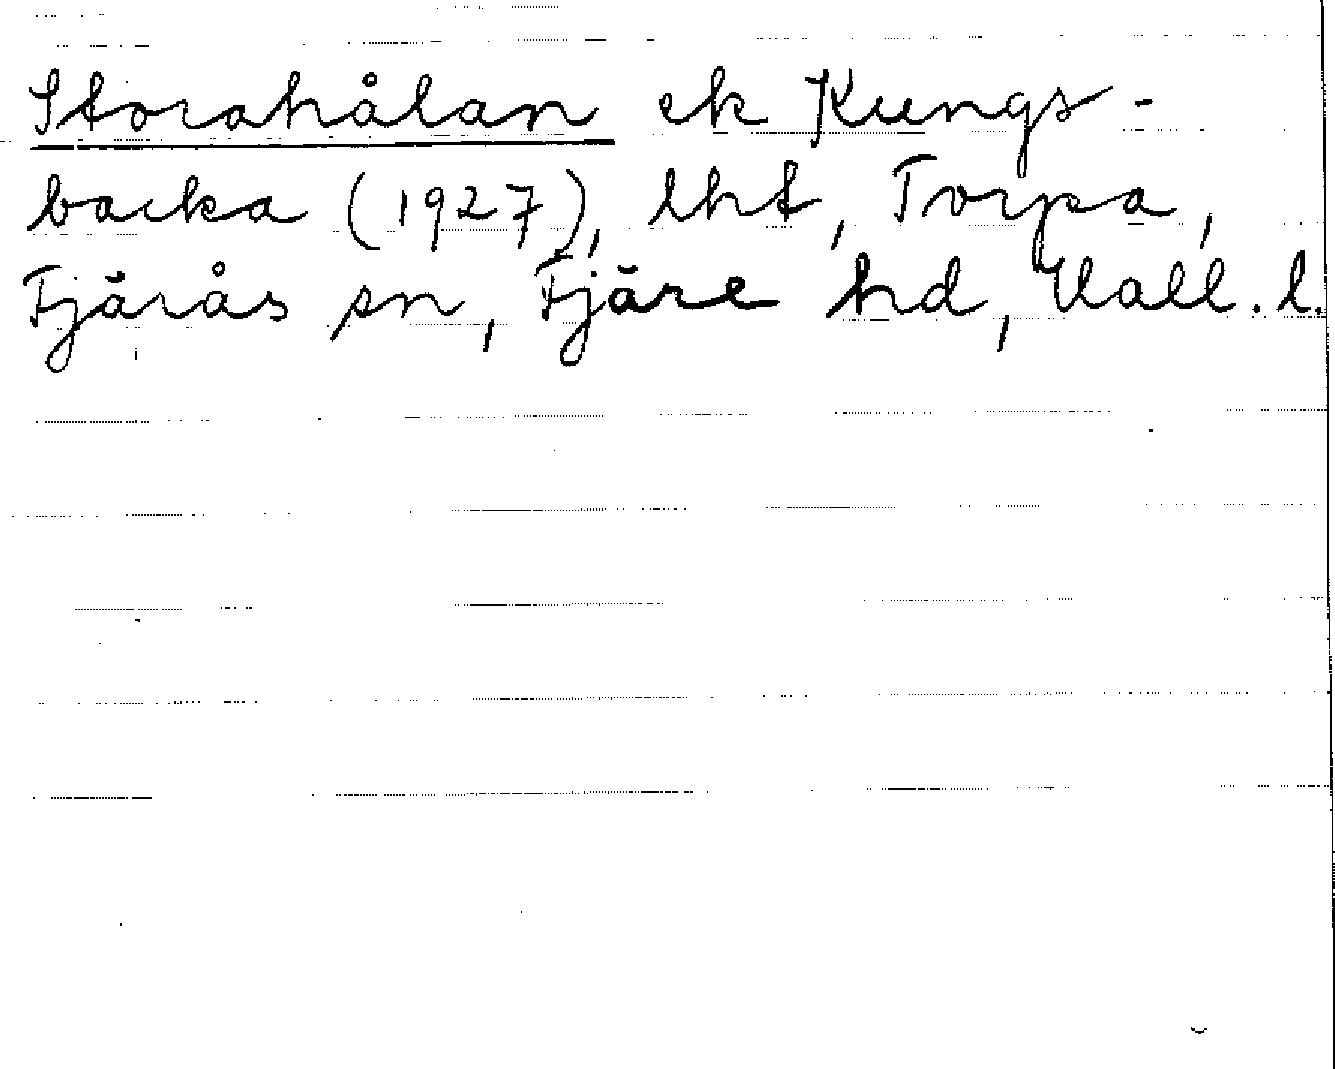 Storahålan ek Kungs-
backa (1927), lht, Torpa,
Fjärås sn, Fjäre hd, Hall. l.